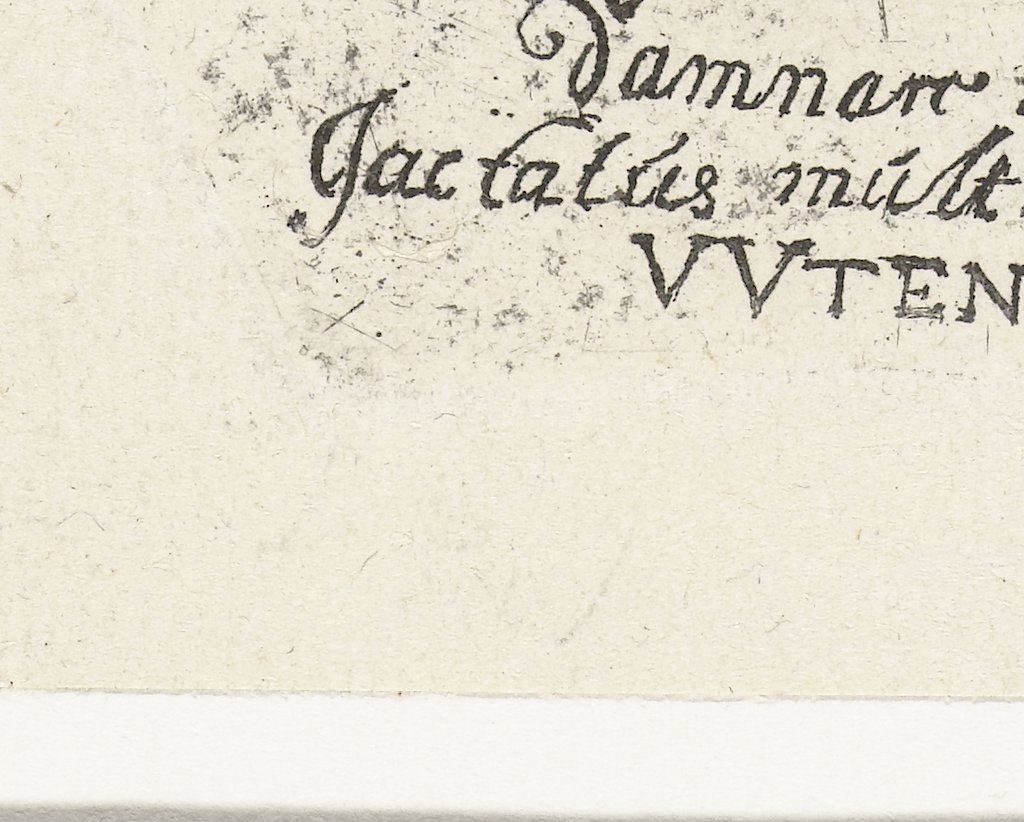 damnare
Jactatus mult
VVTEN